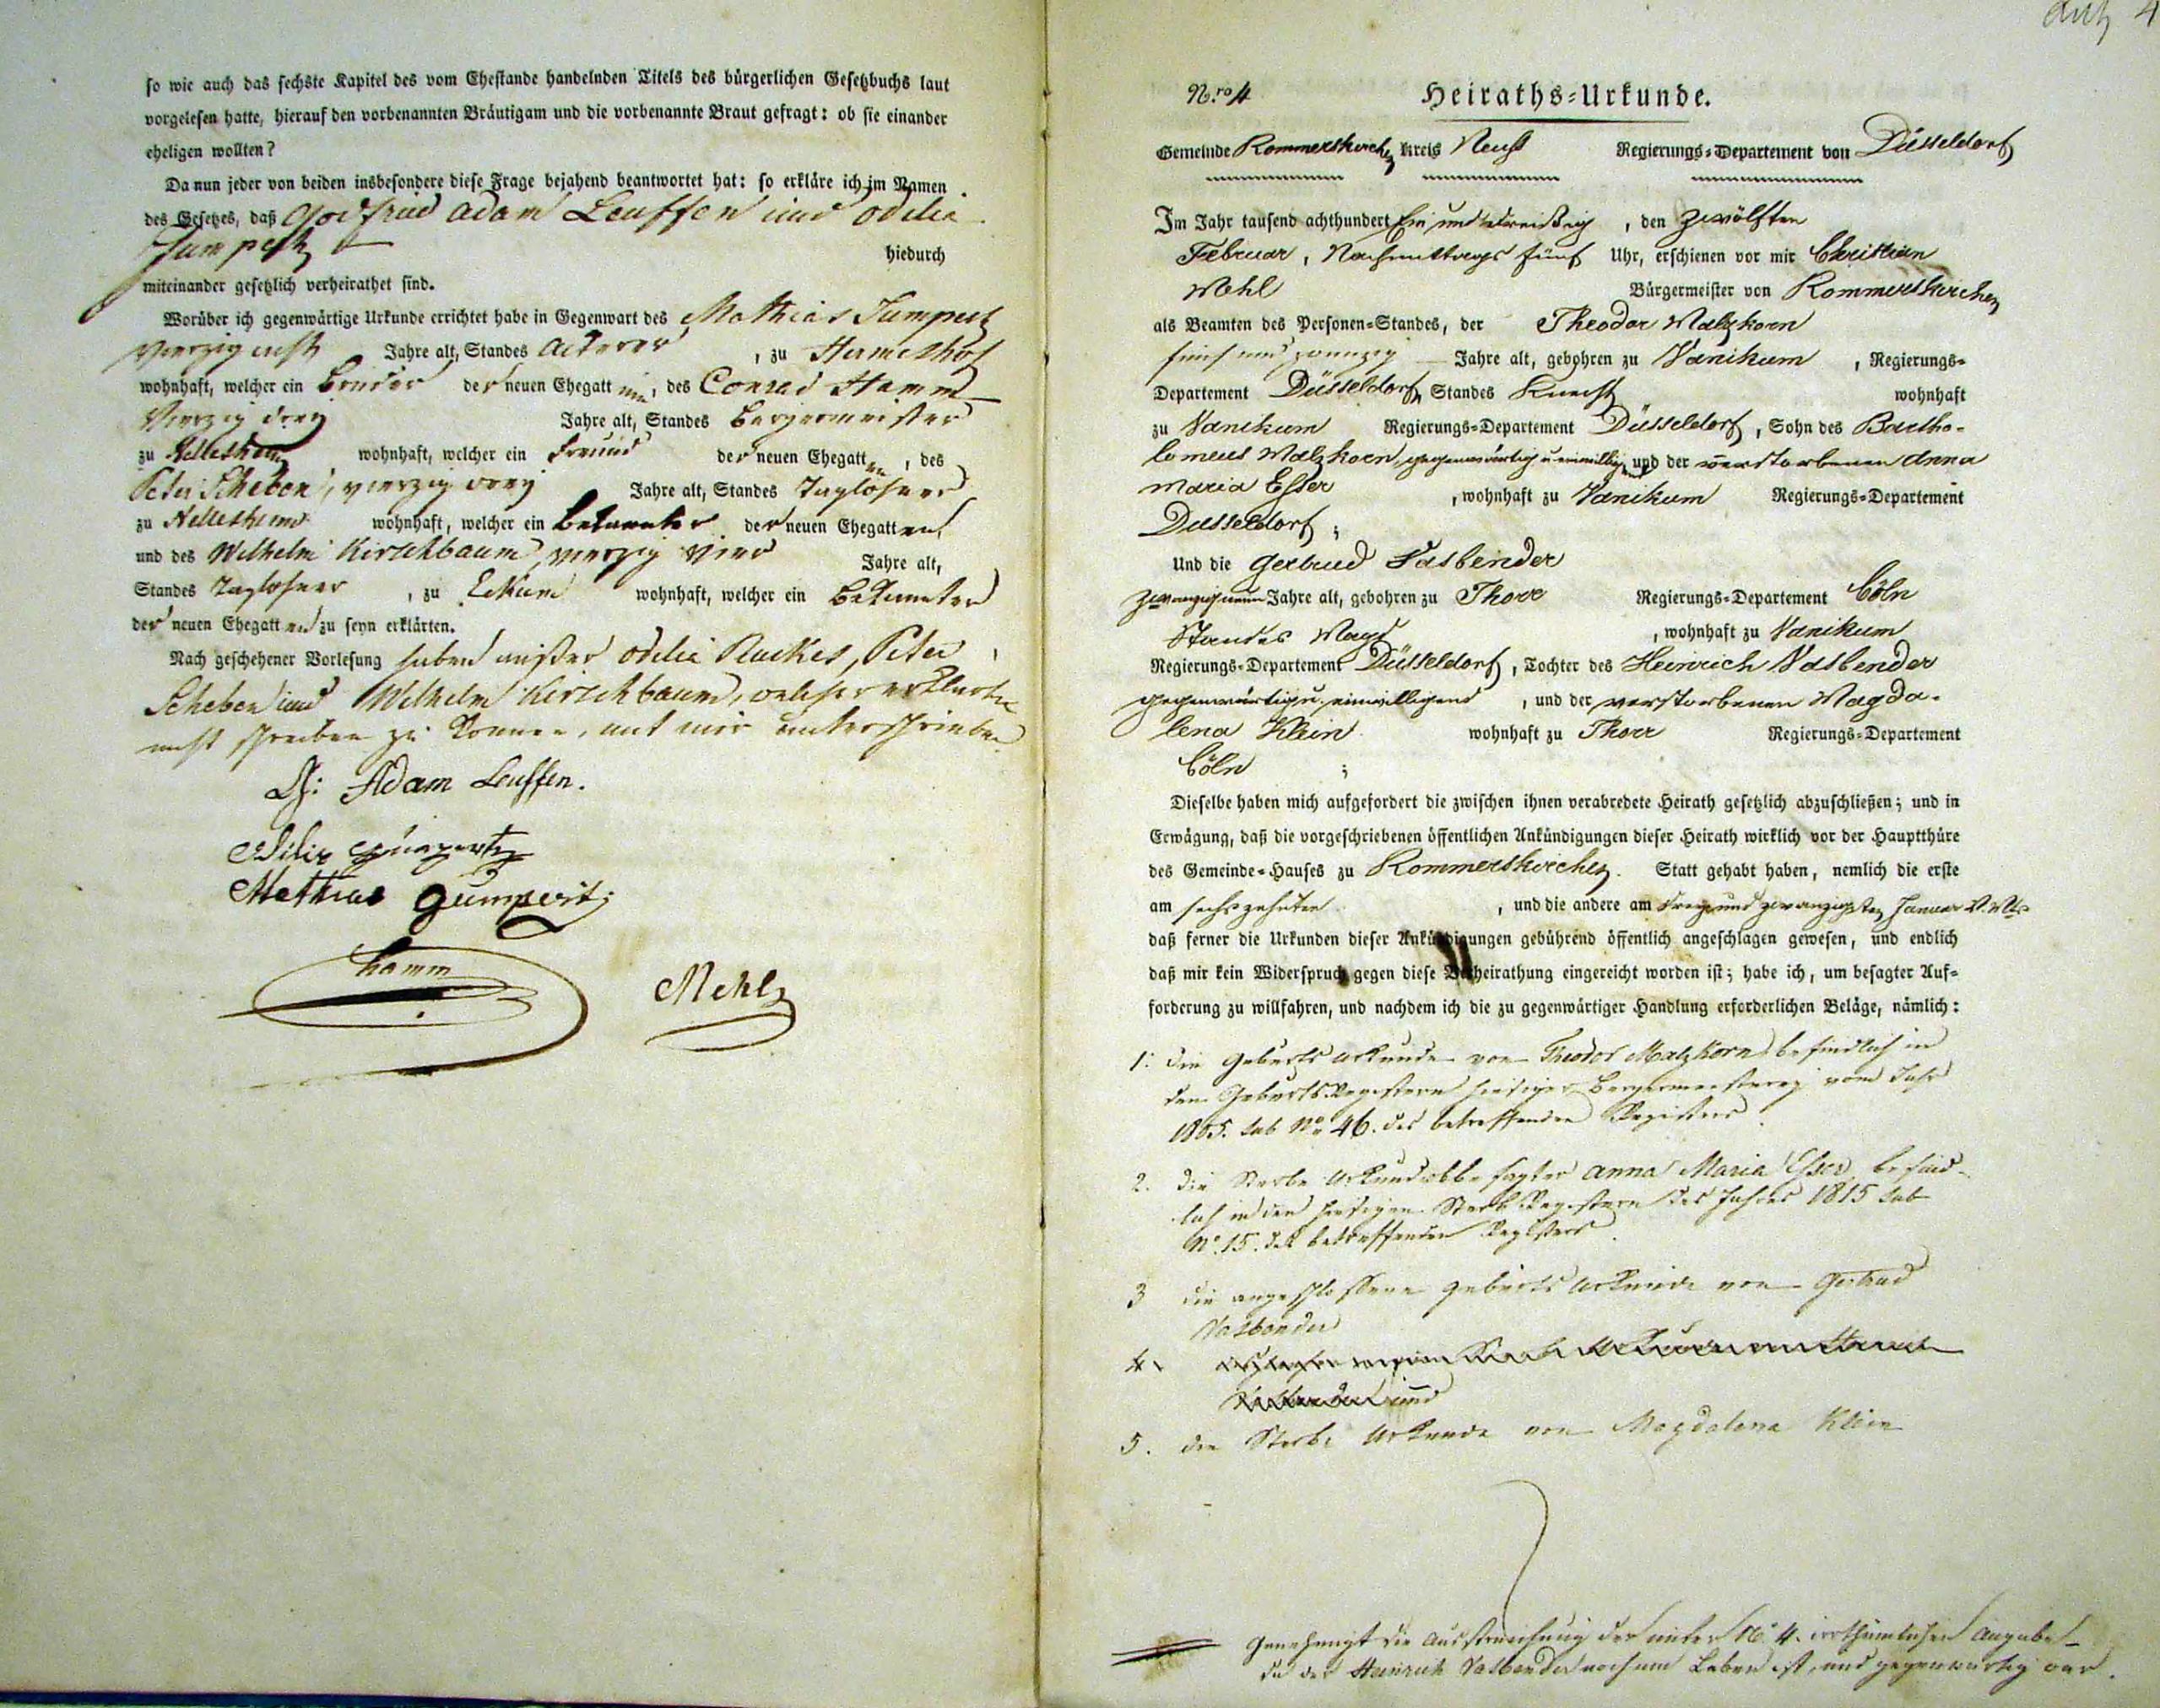 so wie auch das sechste Kapitel des vom Ehestande handelnden Titels des bürgerlichen Gesetzbuchs laut
vorgelesen hatte, hierauf den vorbenannten Bräutigam und die vorbenannte Braut gefragt: ob sie einander
eheligen wollten?
Da nun jeder von beiden insbesondere diese Frage bejahend beantwortet hat: so erkläre ich im Namen
des Gesetzes, daß Godfried Adam Leuffen und Odilia
hiedurch
miteinander gesetzlich verheirathet sind.
Worüber ich gegenwärtige Urkunde errichtet habe in Gegenwart des Mathias Gumpertz
vierzig acht Jahre alt, Standes Ackerer, zu
wohnhaft, welcher ein Bruder der neuen Ehegattinn, des Conrad Hamm
vierzig drey Jahre alt, Standes Bürgermeister
zu Nettesheim wohnhaft, welcher ein Freund der neuen Ehegatten, des
Peter Scheben, vierzig drey Jahre alt, Standes Taglöhner
zu Nettesheim wohnhaft, welcher ein Bekannter der neuen Ehegatten,
und des Wilhelm Kirschbaum, vierzig vier Jahre alt,
Standes Taglöhner, zu Eckum wohnhaft, welcher ein Bekannter
der neuen Ehegatten zu seyn erklärten.
Nach geschehener Vorlesung haben außer Odilia Peter
Scheben und Wilhelm Kirschbaum, welche erklärten
nicht schreiben zu können, mit mir unterschrieben
Adam Leuffen.
Mathias Gumpertz
Hamm
N.ro 4 Heiraths-Urkunde.
Gemeinde Rommerskirchen Kreis Neuß Regierungs-Departement von Düsseldorf
Im Jahr tausend achthundert Ein und dreißig, den zwölften
Februar, Nachmittags fünf Uhr, erschienen vor mir Christian
Mehl Bürgermeister von Rommerskirchen
als Beamten des Personen-Standes, der Theodor Malzkorn
fünf und zwanzig Jahre alt, gebohren zu Vanikum, Regierungs-
Departement Düsseldorf, Standes Knecht wohnhaft
zu Vanikum Regierungs-Departement Düsseldorf, Sohn des Bartho-
lomeus Malzkorn, gegenwärtig u einwilligend und der verstorbenen Anna
Maria Esser, wohnhaft zu Vanikum Regierungs-Departement
Düsseldorf;
Und die Gertrud Vasbender
zwanzig neun Jahre alt, gebohren zu Thorr Regierungs-Departement Cöln
Standes Magd, wohnhaft zu Vanikum
Regierungs-Departement Düsseldorf, Tochter des Heinrich Vasbender
gegenwärtig u. einwilligend, und der verstorbenen Magda-
lena Klein wohnhaft zu Thorr Regierungs-Departement
Cöln;
Dieselbe haben mich aufgefordert die zwischen ihnen verabredete Heirath gesetzlich abzuschließen; und in
Erwägung, daß die vorgeschriebenen öffentlichen Ankündigungen dieser Heirath wirklich vor der Hauptthüre
des Gemeinde-Hauses zu Rommerskirchen. Statt gehabt haben, nemlich die erste
am sechszehnten, und die andere am drey und zwanzigsten Januar
daß ferner die Urkunden dieser Ankündigungen gebührend öffentlich angeschlagen gewesen, und endlich
daß mir kein Widerspruch gegen diese Verheirathung eingereicht worden ist; habe ich, um besagter Auf-
forderung zu willfahren, und nachdem ich die zu gegenwärtiger Handlung erforderlichen Beläge, nämlich:
1. die Geburts Urkunde von Theodor Malzkorn befindlich in
den Geburts Registern hiesiger Bürgermeisterey vom Jahr
1805. sub No 46. des betreffenden Registers
2. die Sterbe Urkunde besagter Anna Maria Esser, befind-
lich in den hiesigen Sterb Registern des Jahres 1815 sub
No. 15. des betreffenden Registers
3 die angeschlossene Geburts Urkunde von Gertrud
Vasbender
4.
und
5. die Sterbe Urkunde von Magdalena Klein
Genehmigt die Ausstreichung der unter No 4. irrthümlichen Angabe
da der Heinrich Vasbender noch am Leben ist, und gegenwärtig war.